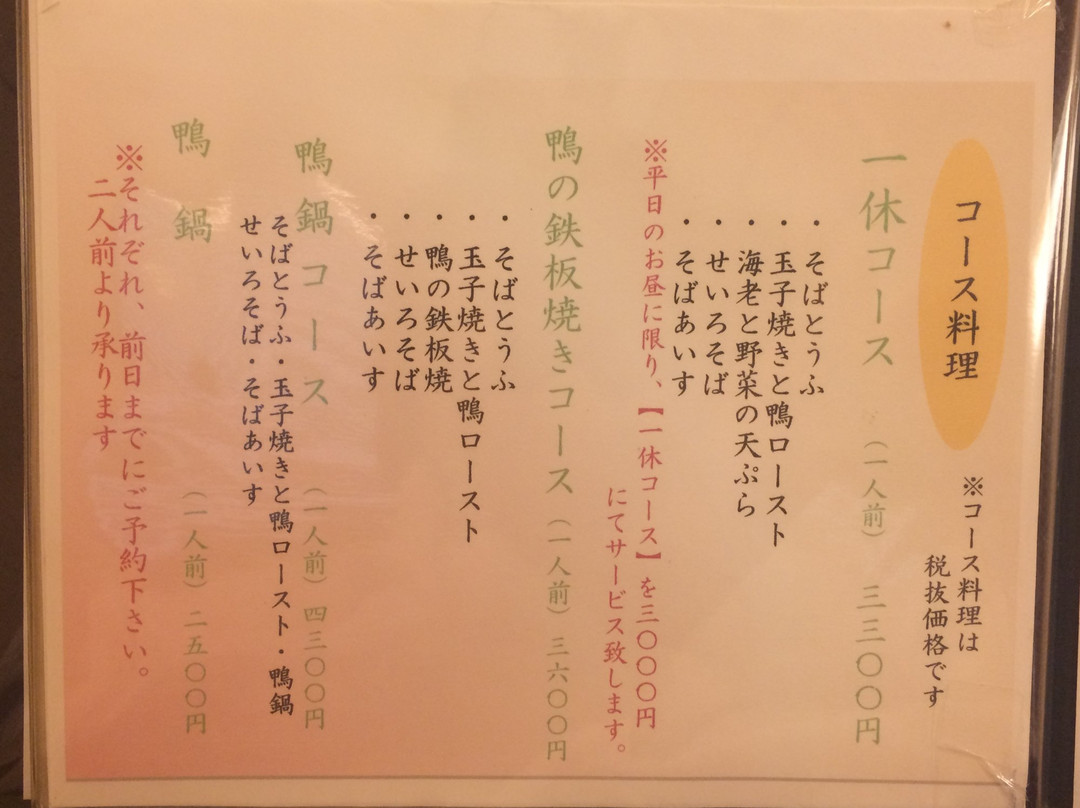 コース料理
※コース料理は
税抜価格です
一休コース （一人前） 三三〇〇円
・そばとうふ
・玉子焼きと鴨ロースト
・海老と野菜の天ぷら
・せいろそば
・そばあいす
※平日のお昼に限り、【一休コース】を三〇〇〇円
にてサービス致します。
鴨の鉄板焼きコース （一人前） 三六〇〇円
・そばとうふ
・玉子焼きと鴨ロースト
・鴨の鉄板焼
・せいろそば
・そばあいす
鴨鍋コース （一人前） 四三〇〇円
そばとうふ・玉子焼きと鴨ロースト・鴨鍋
せいろそば・そばあいす
鴨鍋 （一人前） 二五〇〇円
※それぞれ、前日までにご予約下さい。
二人前より承ります